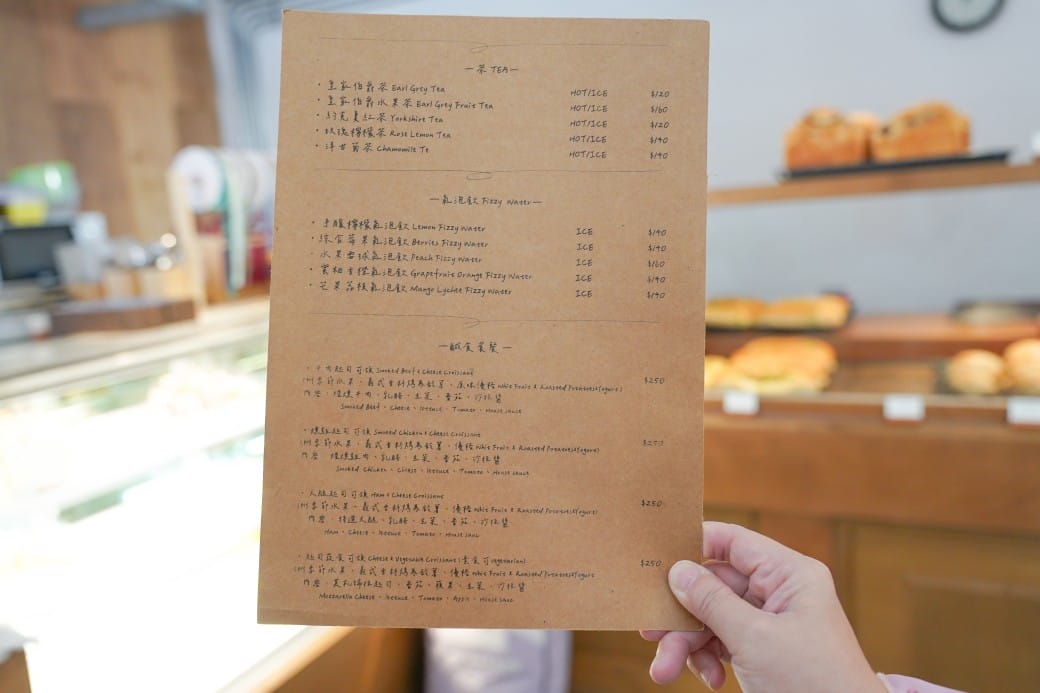 — 茶 TEA —
・皇家伯爵茶 Earl Grey Tea HOT/ICE $120
・皇家伯爵水果茶 Earl Grey Fruit Tea HOT/ICE $160
・約克夏紅茶 Yorkshire Tea HOT/ICE $120
・玫瑰檸檬茶 Rose Lemon Tea HOT/ICE $140
・洋甘菊茶 Chamomile Te HOT/ICE $140
— 氣泡飲 Fizzy Water —
・手釀檸檬氣泡飲 Lemon Fizzy Water ICE $140
・綜合莓果氣泡飲 Berries Fizzy Water ICE $140
・水果雪球氣泡飲 Peach Fizzy Water ICE $160
・蜜柚香橙氣泡飲 Grapefruit Orange Fizzy Water ICE $140
・芒果荔枝氣泡飲 Mango Lychee Fizzy Water ICE $140
— 鹹食套餐 —
・牛肉起司可頌 Smoked Beef & Cheese Croissant $250
季節水果、義式香料烤馬鈴薯、原味優格 Fruit & Roasted Potatoes & Yogurt)
內容：煙燻牛肉、乳酪、生菜、番茄、沙拉醬
Smoked Beef、Cheese、lettuce、Tomato、House sauce
・燻雞起司可頌 Smoked Chicken & Cheese Croissant $250
季節水果、義式香料烤馬鈴薯、優格 Fruit & Roasted Potatoes & Yogurt)
內容：煙燻雞肉、乳酪、生菜、番茄、沙拉醬
Smoked Chicken、Cheese、lettuce、Tomato、House sauce
・火腿起司可頌 Ham & Cheese Croissant $250
季節水果、義式香料烤馬鈴薯、優格 Fruit & Roasted Potatoes & Yogurt)
內容：特選火腿、乳酪、生菜、番茄、沙拉醬
Ham、Cheese、lettuce、Tomato、House sauc
・起司蔬食可頌 Cheese & Vegetable Croissant (素食可 vegetarian) $250
季節水果、義式香料烤馬鈴薯、優格 Fruit & Roasted Potatoes & Yogurt
內容：莫札瑞拉起司、番茄、蘋果、生菜、沙拉醬
Mozzarella Cheese、lettuce、Tomato、Apple、House sauc